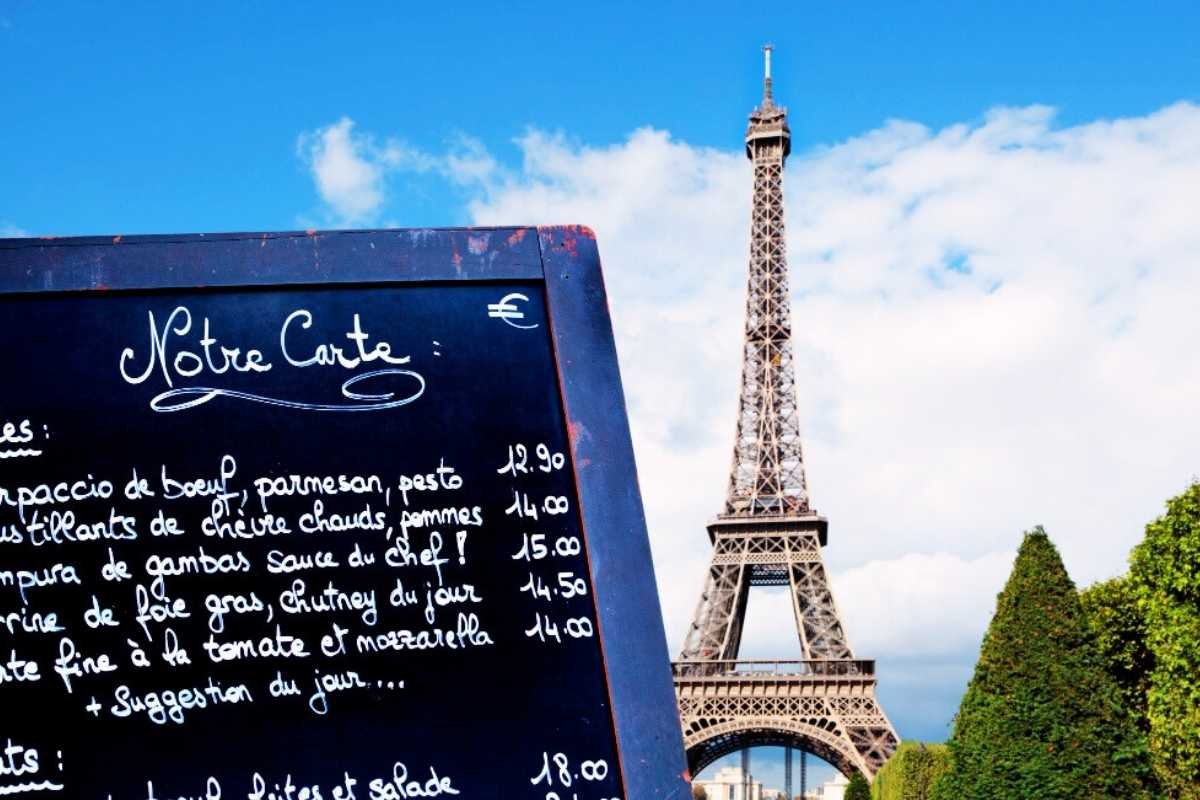 €
Notre Carte :
es :
rpaccio de boeuf, parmesan, pesto 12.90
us tillants de chèvre chauds, pommes 14.00
mpura de gambas sauce du chef ! 15.00
rrine de foie gras, chutney du jour 14.50
rte fine à la tomate et mozzarella 14.00
+ Suggestion du jour...
ats :
boeuf, frites et salade 18.00